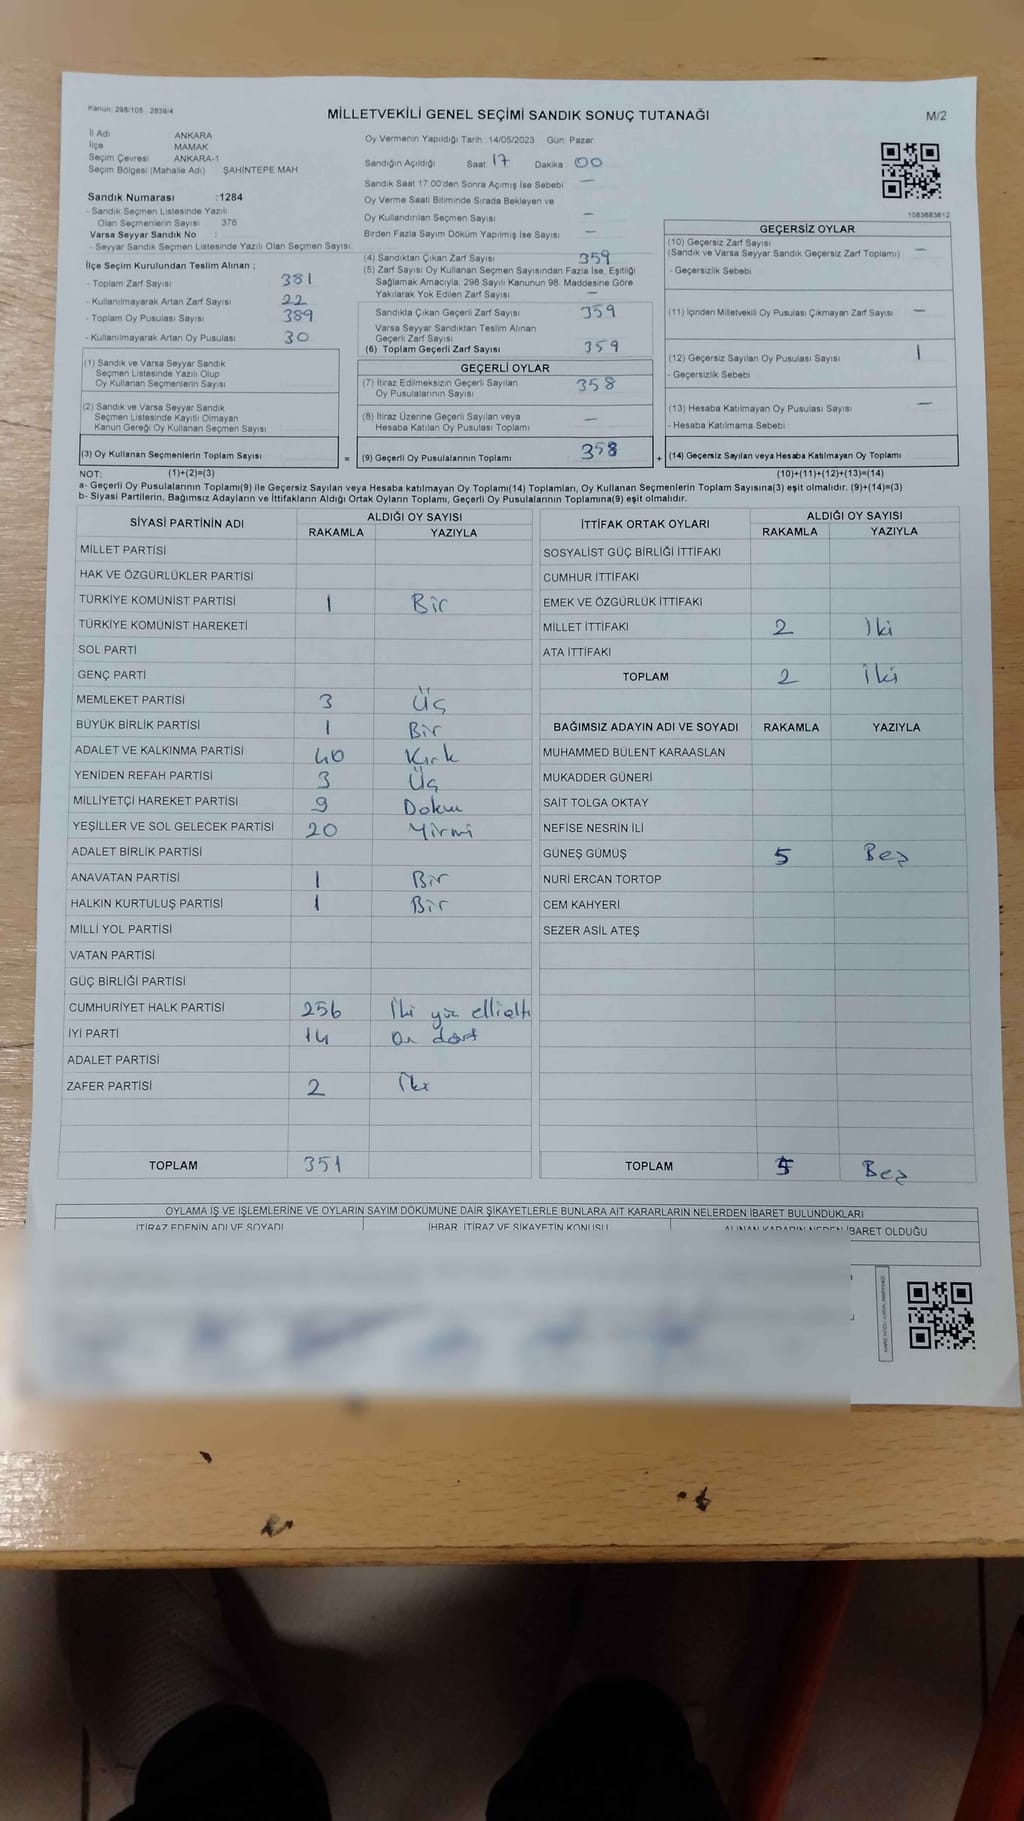 Kanun: 298/105 : 2839/4
MİLLETVEKİLİ GENEL SEÇİMİ SANDIK SONUÇ TUTANAĞI
M/2
İl Adı ANKARA
İlçe MAMAK
Seçim Çevresi ANKARA-1
Seçim Bölgesi (Mahalle Adı) ŞAHİNTEPE MAH
Sandık Numarası :1284
- Sandık Seçmen Listesinde Yazılı
Olan Seçmenlerin Sayısı 376
Varsa Seyyar Sandık No :
- Seyyar Sandık Seçmen Listesinde Yazılı Olan Seçmen Sayısı:
İlçe Seçim Kurulundan Teslim Alınan ;
- Toplam Zarf Sayısı 381
- Kullanılmayarak Artan Zarf Sayısı 22
- Toplam Oy Pusulası Sayısı 389
- Kullanılmayarak Artan Oy Pusulası 30
(1) Sandık ve Varsa Seyyar Sandık
Seçmen Listesinde Yazılı Olup
Oy Kullanan Seçmenlerin Sayısı
(2) Sandık ve Varsa Seyyar Sandık
Seçmen Listesinde Kayıtlı Olmayan
Kanun Gereği Oy Kullanan Seçmen Sayısı
(3) Oy Kullanan Seçmenlerin Toplam Sayısı
=
Oy Vermenin Yapıldığı Tarih :14/05/2023 Gün: Pazar
Sandığın Açıldığı Saat 17 Dakika 00
Sandık Saat 17:00'den Sonra Açımış İse Sebebi —
Oy Verme Saati Bitiminde Sırada Bekleyen ve
Oy Kullandırılan Seçmen Sayısı —
Birden Fazla Sayım Döküm Yapılmış İse Sayısı —
(4) Sandıktan Çıkan Zarf Sayısı 359
(5) Zarf Sayısı Oy Kullanan Seçmen Sayısından Fazla İse, Eşitliği
Sağlamak Amacıyla; 298 Sayılı Kanunun 98. Maddesine Göre
Yakılarak Yok Edilen Zarf Sayısı —
Sandıkta Çıkan Geçerli Zarf Sayısı 359
Varsa Seyyar Sandıktan Teslim Alınan
Geçerli Zarf Sayısı
(6) Toplam Geçerli Zarf Sayısı 359
GEÇERLİ OYLAR
(7) İtiraz Edilmeksizin Geçerli Sayılan
Oy Pusulalarının Sayısı 358
(8) İtiraz Üzerine Geçerli Sayılan veya
Hesaba Katılan Oy Pusulası Toplamı —
(9) Geçerli Oy Pusulalarının Toplamı 358
+
1083683612
GEÇERSİZ OYLAR
(10) Geçersiz Zarf Sayısı
(Sandık ve Varsa Seyyar Sandık Geçersiz Zarf Toplamı) —
- Geçersizlik Sebebi
(11) İçinden Milletvekili Oy Pusulası Çıkmayan Zarf Sayısı —
(12) Geçersiz Sayılan Oy Pusulası Sayısı 1
- Geçersizlik Sebebi
(13) Hesaba Katılmayan Oy Pusulası Sayısı —
- Hesaba Katılmama Sebebi
(14) Geçersiz Sayılan veya Hesaba Katılmayan Oy Toplamı
NOT: (1)+(2)=(3) (10)+(11)+(12)+(13)=(14)
a- Geçerli Oy Pusulalarının Toplamı(9) ile Geçersiz Sayılan veya Hesaba Katılmayan Oy Toplamı(14) Toplamları, Oy Kullanan Seçmenlerin Toplam Sayısına(3) eşit olmalıdır. (9)+(14)=(3)
b- Siyasi Partilerin, Bağımsız Adayların ve İttifakların Aldığı Ortak Oyların Toplamı, Geçerli Oy Pusulalarının Toplamına(9) eşit olmalıdır.
SİYASİ PARTİNİN ADI ALDIĞI OY SAYISI
RAKAMLA YAZIYLA
MİLLET PARTİSİ
HAK VE ÖZGÜRLÜKLER PARTİSİ
TÜRKİYE KOMÜNİST PARTİSİ 1 Bir
TÜRKİYE KOMÜNİST HAREKETİ
SOL PARTİ
GENÇ PARTİ
MEMLEKET PARTİSİ 3 Üç
BÜYÜK BİRLİK PARTİSİ 1 Bir
ADALET VE KALKINMA PARTİSİ 40 Kırk
YENİDEN REFAH PARTİSİ 3 Üç
MİLLİYETÇİ HAREKET PARTİSİ 9 Dokuz
YEŞİLLER VE SOL GELECEK PARTİSİ 20 Yirmi
ADALET BİRLİK PARTİSİ
ANAVATAN PARTİSİ 1 Bir
HALKIN KURTULUŞ PARTİSİ 1 Bir
MİLLİ YOL PARTİSİ
VATAN PARTİSİ
GÜÇ BİRLİĞİ PARTİSİ
CUMHURİYET HALK PARTİSİ 256 İki yüz ellialtı
İYİ PARTİ 14 On dört
ADALET PARTİSİ
ZAFER PARTİSİ 2 İki
TOPLAM 351
İTTİFAK ORTAK OYLARI ALDIĞI OY SAYISI
RAKAMLA YAZIYLA
SOSYALİST GÜÇ BİRLİĞİ İTTİFAKI
CUMHUR İTTİFAKI
EMEK VE ÖZGÜRLÜK İTTİFAKI
MİLLET İTTİFAKI 2 İki
ATA İTTİFAKI
TOPLAM 2 İki
BAĞIMSIZ ADAYIN ADI VE SOYADI RAKAMLA YAZIYLA
MUHAMMED BÜLENT KARAASLAN
MUKADDER GÜNERİ
SAİT TOLGA OKTAY
NEFİSE NESRİN İLİ
GÜNEŞ GÜMÜŞ 5 Beş
NURİ ERCAN TORTOP
CEM KAHYERİ
SEZER ASİL ATEŞ
TOPLAM 5 Beş
OYLAMA İŞ VE İŞLEMLERİNE VE OYLARIN SAYIM DÖKÜMÜNE DAİR ŞİKAYETLERLE BUNLARA AİT KARARLARIN NELERDEN İBARET BULUNDUKLARI
İTİRAZ EDENİN ADI VE SOYADI İHBAR, İTİRAZ VE ŞİKAYETİN KONUSU ALINAN KARARIN NEDEN İBARET OLDUĞU